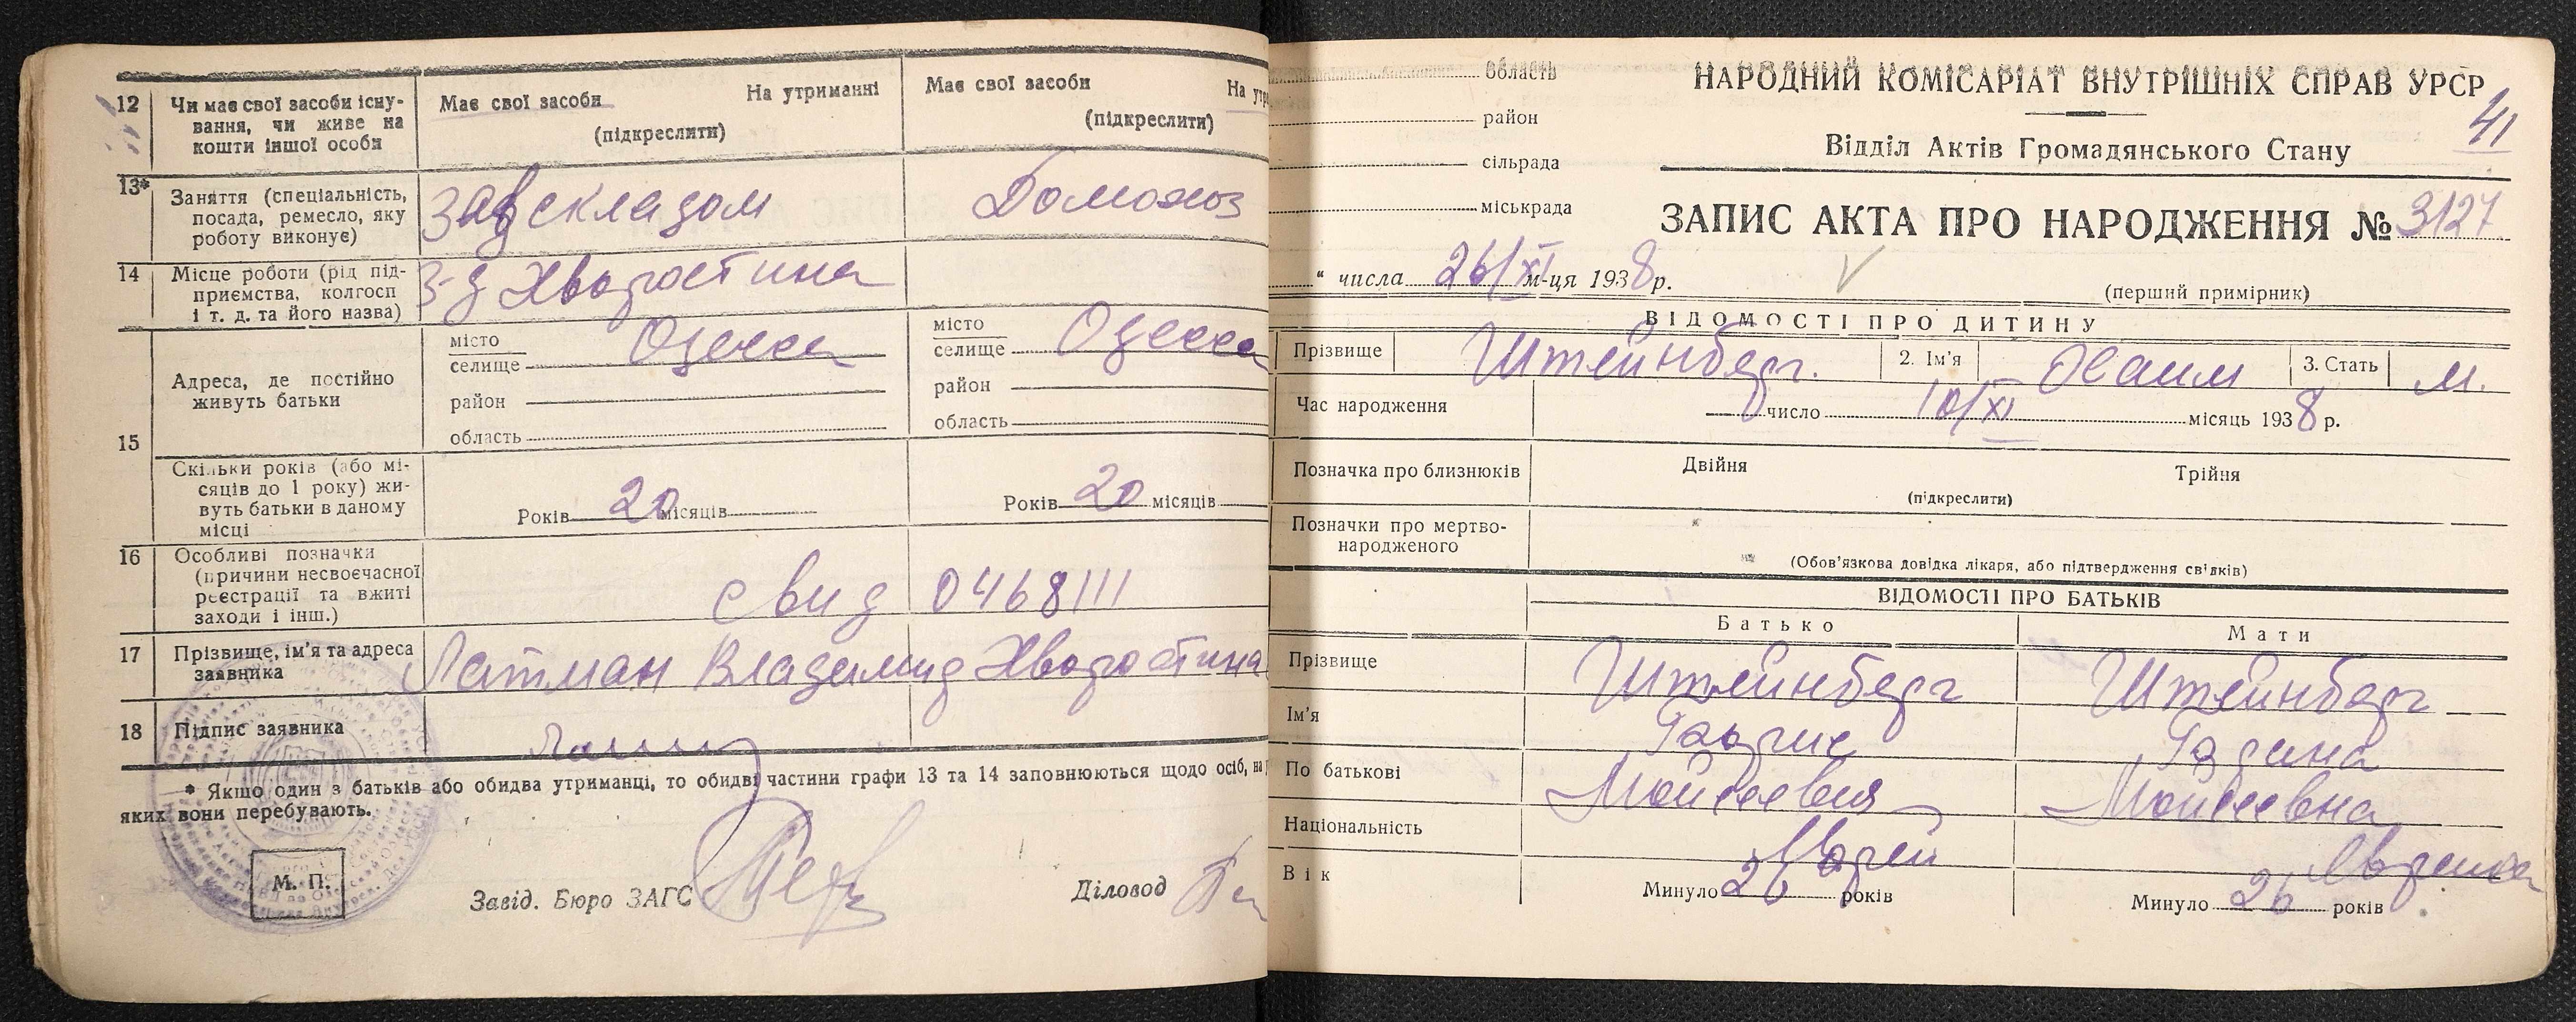 12 Чи має свої засоби існу-
вання, чи живе на
кошти іншої особи
Має свої засоби На утриманні
(підкреслити)
Має свої засоби На утр
(підкреслити)
13* Заняття (спеціальність,
посада, ремесло, яку
роботу виконує)
Завскладом Домохоз
14 Місце роботи (рід під-
приємства, колгосп
і т. д. та його назва)
З-д Хворостина
15 Адреса, де постійно
живуть батьки
місто Одесса
селище
район
область
місто Одесса
селище
район
область
Скільки років (або мі-
сяців до 1 року) жи-
вуть батьки в даному
місці
Років 20 місяців
Років 20 місяців
16 Особливі позначки
(причини несвоєчасної
реєстрації та вжиті
заходи і інш.)
свид 0468111
17 Прізвище, ім'я та адреса
заявника
Латман Владимир Хворостина
18 Підпис заявника
* Якщо один з батьків або обидва утриманці, то обидві частини графи 13 та 14 заповнюються щодо осіб, на
яких вони перебувають.
М. П.
Завід. Бюро ЗАГС Діловод
область
район
сільрада
міськрада
НАРОДНИЙ КОМІСАРІАТ ВНУТРІШНІХ СПРАВ УРСР
41
Відділ Актів Громадянського Стану
ЗАПИС АКТА ПРО НАРОДЖЕННЯ № 3127
" числа 26/XI м-ця 1938 р.
(перший примірник)
ВІДОМОСТІ ПРО ДИТИНУ
Прізвище Штейнберг. 2. Ім'я Хаим 3. Стать м.
Час народження число 10/XI місяць 1938 р.
Позначка про близнюків Двійня Трійня
(підкреслити)
Позначки про мертво-
народженого
(Обов'язкова довідка лікаря, або підтвердження свідків)
ВІДОМОСТІ ПРО БАТЬКІВ
Батько Мати
Прізвище Штейнберг Штейнберг
Ім'я
По батькові Мойсеевич Мойсеевна
Національність Еврей Еврейка
Вік Минуло 26 років Минуло 26 років